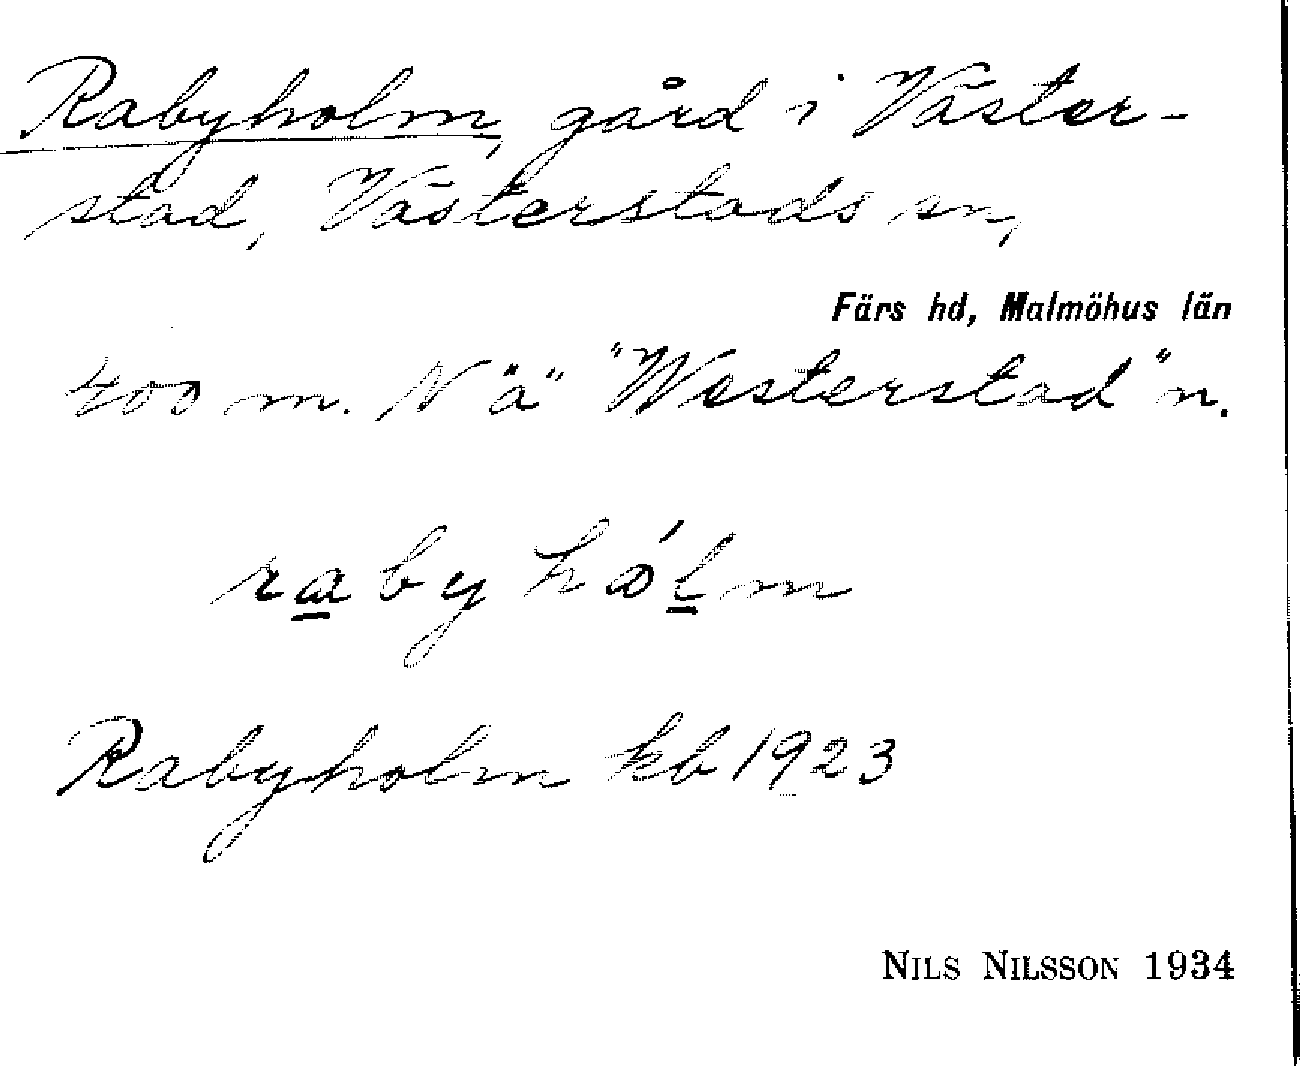 Rabyholm, gård i Väster-
stad, Västerstads sn,
Färs hd, Malmöhus län
400 m. N "ä" "Westerstad" n.
rabyhólm
Rabyholm kb 1923
NILS NILSSON 1934